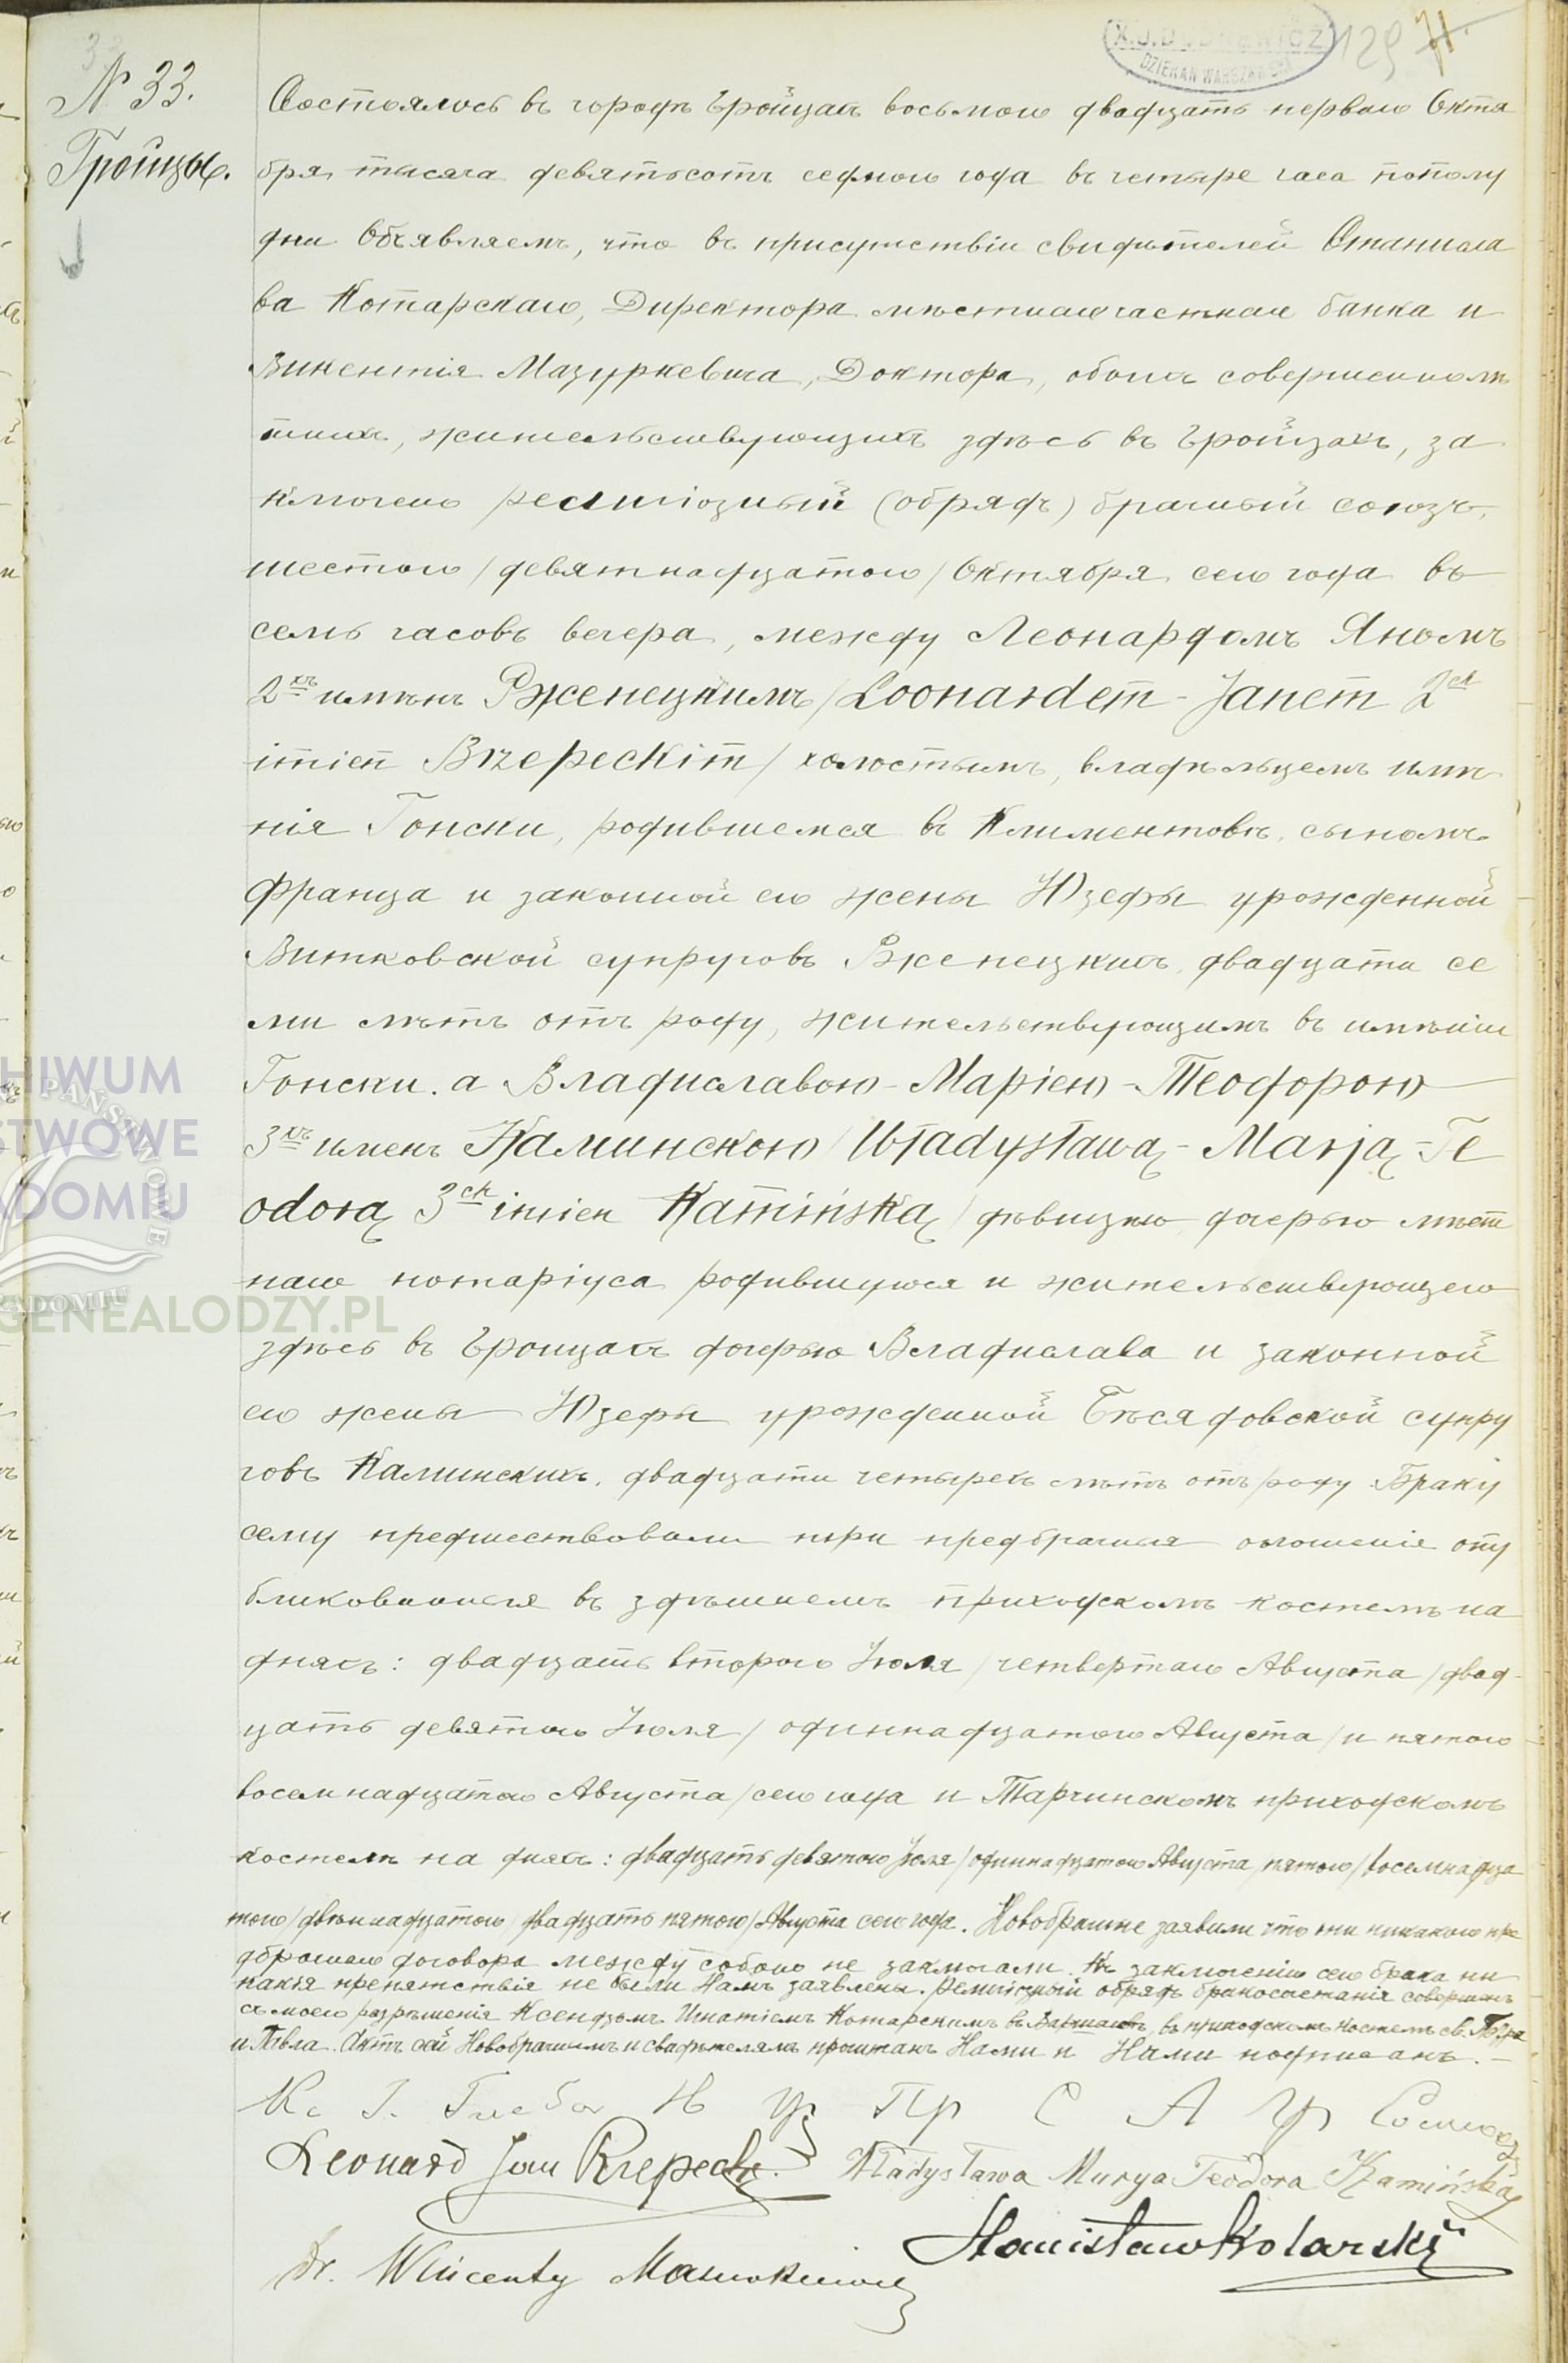 129 71.
X.J.DUDREWICZ
DZIEKAN WARSZAWSKI
33
N 33.
Гройцы.
Состоялось въ городѣ Гройцахъ восьмого двадцать перваго Октя
бря тысяча девятьсотъ седмого года въ четыре часа пополу
дни Объявляемъ, что въ присутствіи свидѣтелей Станисла
ва Котарскаго, Директора мѣстнаго частнаго банка и
Викентія Мазуркевича, Доктора, обоихъ совершеннолѣ
тнихъ, жительствующихъ здѣсь въ Гройцахъ, за
ключенъ религіозный (обрядъ) брачный союзъ,
шестого /девятнадцатого/ Октября сего года въ
семь часовъ вечера, между Леонардомъ Яномъ
2хъ именъ Рженецкимъ /Leonardem-Janem 2ch
imien Rzepeckim/ холостымъ, владѣльцемъ имѣ
нія Гонски, родившемся въ Климентовѣ, сыномъ
Франца и законной его жены Юзефы урожденной
Витковской супруговъ Рженецкихъ, двадцати се
ми лѣтъ отъ роду, жительствующимъ въ имѣніи
Гонски. а Владиславою-Маріею-Теодорою
3хъ именъ Каминскою /Władysławą-Marją-Te
odorą 3ch imien Kamińską/ дѣвицею дочерью мѣст
наго нотаріуса родившуюся и жительствующего
здѣсь въ Гройцахъ дочерью Владислава и законной
его жены Юзефы урожденной Бѣсядовской супру
говъ Каминскихъ, двадцати четырехъ лѣтъ отъ роду Браку
сему предшествовали три предбрачныя оглошенія опу
бликованныя въ здѣшнемъ приходскомъ костелѣ на
дняхъ: двадцать второго Іюля /четвертаго Августа/ двад-
цать девятого Іюля/ одиннадцатого Августа/ и пятого
восемнадцатого Августа/ сего года и Тарчинскомъ приходскомъ
костелѣ на дняхъ: двадцать девятого Іюля /одиннадцатого Августа, пятого/ восемнадца
того/ двѣнадцатого /двадцать пятого/ Августа сего года. Новобрачные заявили что они никакого пре
дбрачнаго договора между собою не заключали. Къ заключенію сего брака ни
какія препятствія не были Намъ заявлены. Религіозный обрядъ бракосочетанія совершенъ
съ моего разрѣшенія Ксендзомъ Игнатіемъ Котарскимъ въ Варшавѣ, въ приходскомъ костелѣ св. Петра
и Павла. Актъ сей Новобрачнымъ и свидѣтелямъ прочитанъ Нами и Нами подписанъ.
Leonard Jan Rzepecki. Władysława Marya Teodora Kamińska
Stanisław Kotarski
Dr. Wincenty Mazurkiewicz
ARCHIWUM
PAŃSTWOWE
RADOMIU
GENEALODZY.PL